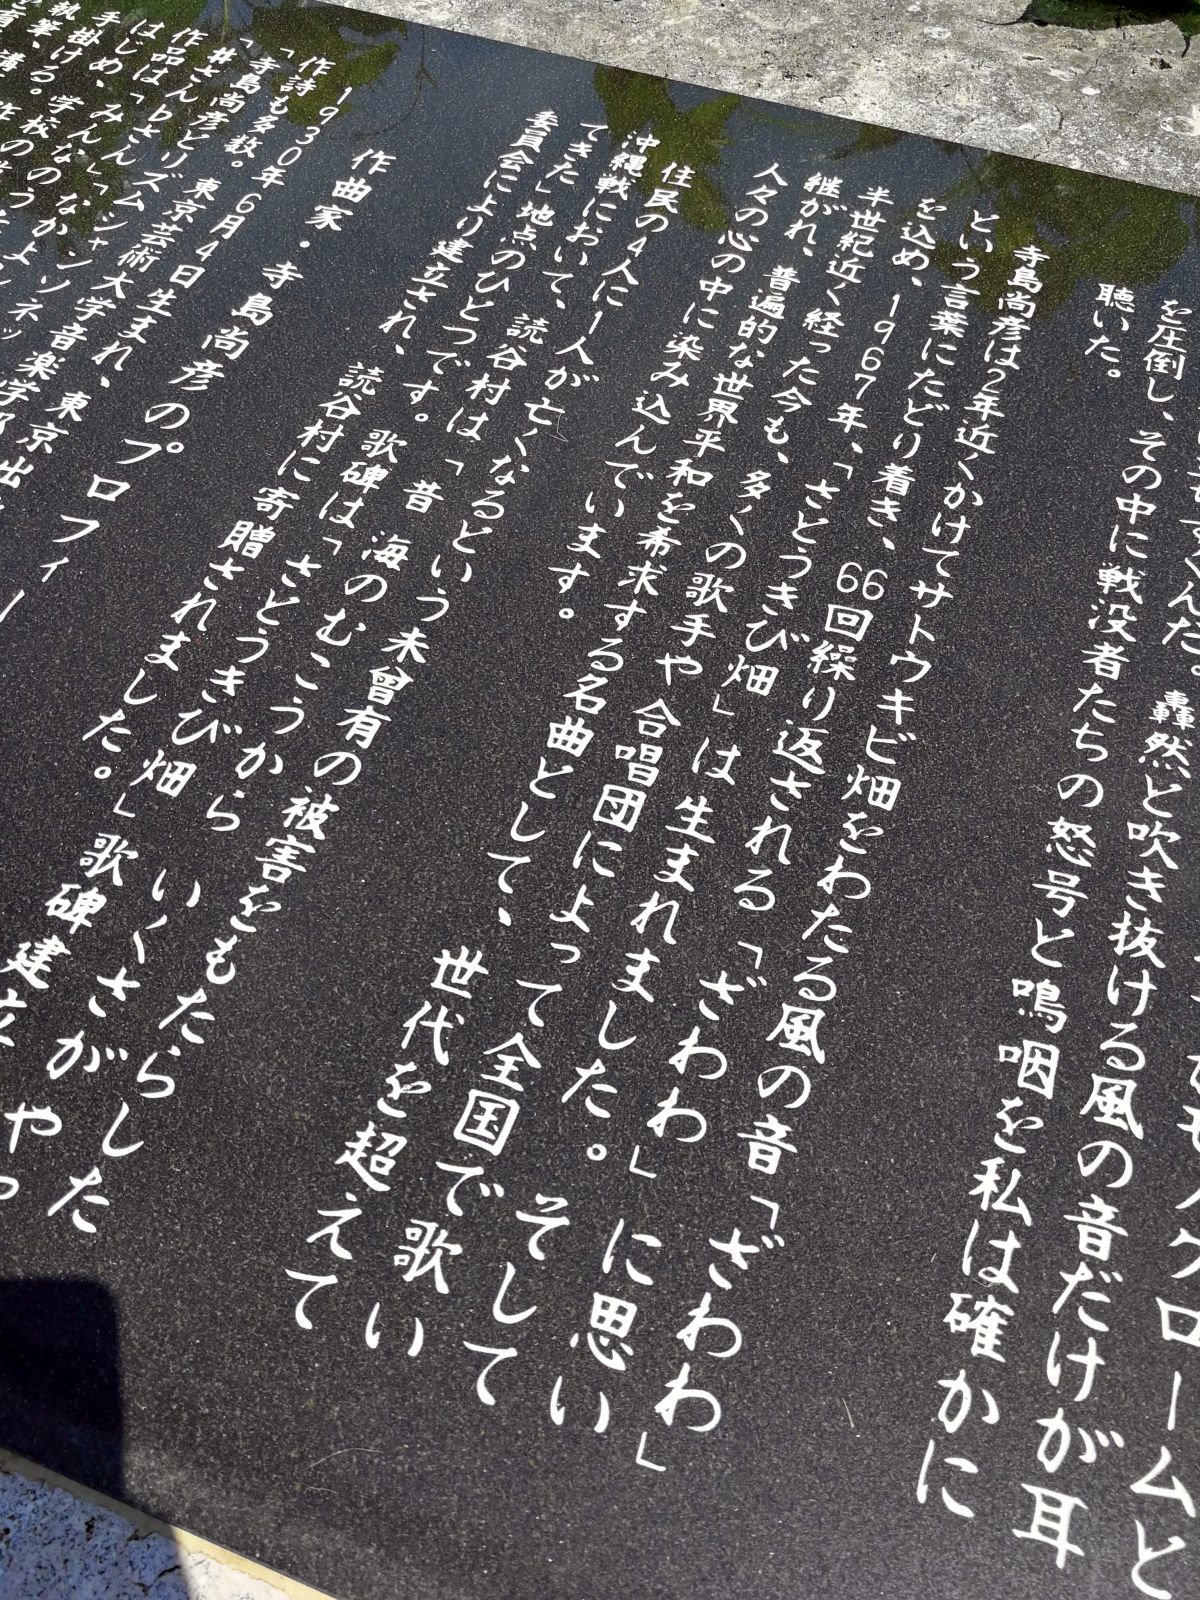 クロームと
くんだ。轟然と吹き抜ける風の音だけが耳
を圧倒し、その中に戦没者たちの怒号と嗚咽を私は確かに
聴いた。
寺島尚彦は2年近くかけてサトウキビ畑をわたる風の音「ざわわ」
という言葉にたどり着き、66回繰り返される「ざわわ」に思い
を込め、1967年、「さとうきび畑」は生まれました。そして
半世紀近く経った今も、多くの歌手や合唱団によって全国で歌い
継がれ、普遍的な世界平和を希求する名曲として、世代を超えて
人々の心の中に染み込んでいます。
住民の4人に1人が亡くなるという未曾有の被害をもたらした
沖縄戦において、読谷村は「昔 海のむこうから いくさがやっ
てきた」地点のひとつです。歌碑は「さとうきび畑」歌碑建立
委員会により建立され、読谷村に寄贈されました。
作曲家・寺島尚彦のプロフィー
1930年6月4日生まれ、東京出
作詩も多数。東京芸術大学音楽学部
「寺島尚彦とリズムシャンソネッ